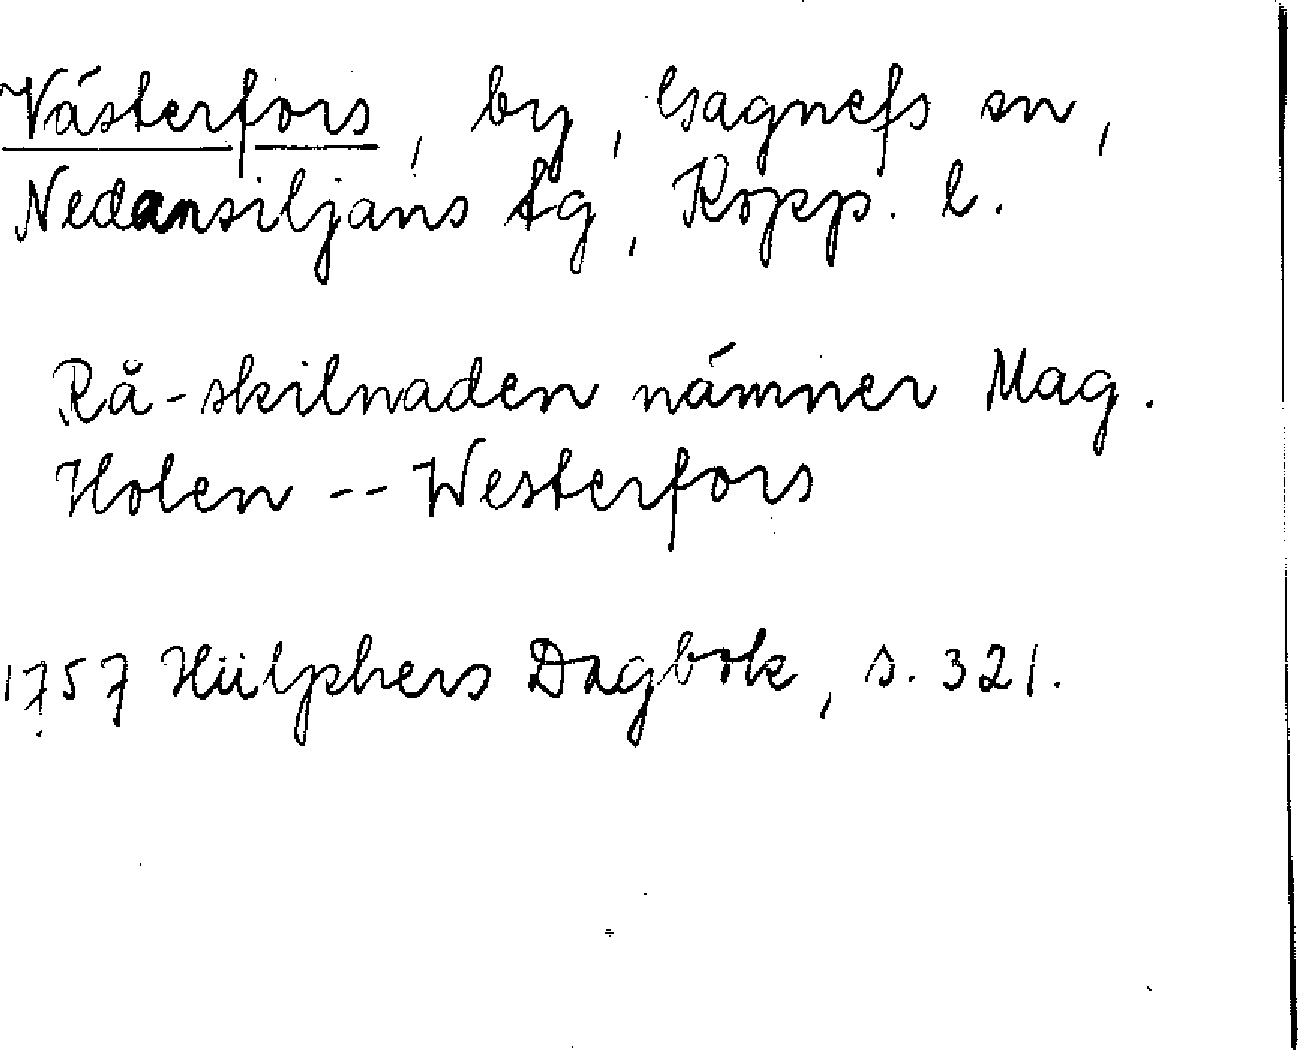 Västerfors, by, Gagnefs sn,
Nedansiljans tg, Kopp. l.
Rå-skilnaden nämner Mag.
Holen -- Westerfors
1757 Hülphers Dagbok, s. 321.